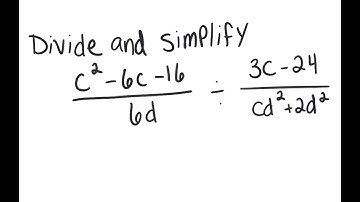 Divide and simplify
c² - 6c - 16 / 6d ÷ 3c - 24 / cd² + 2d²